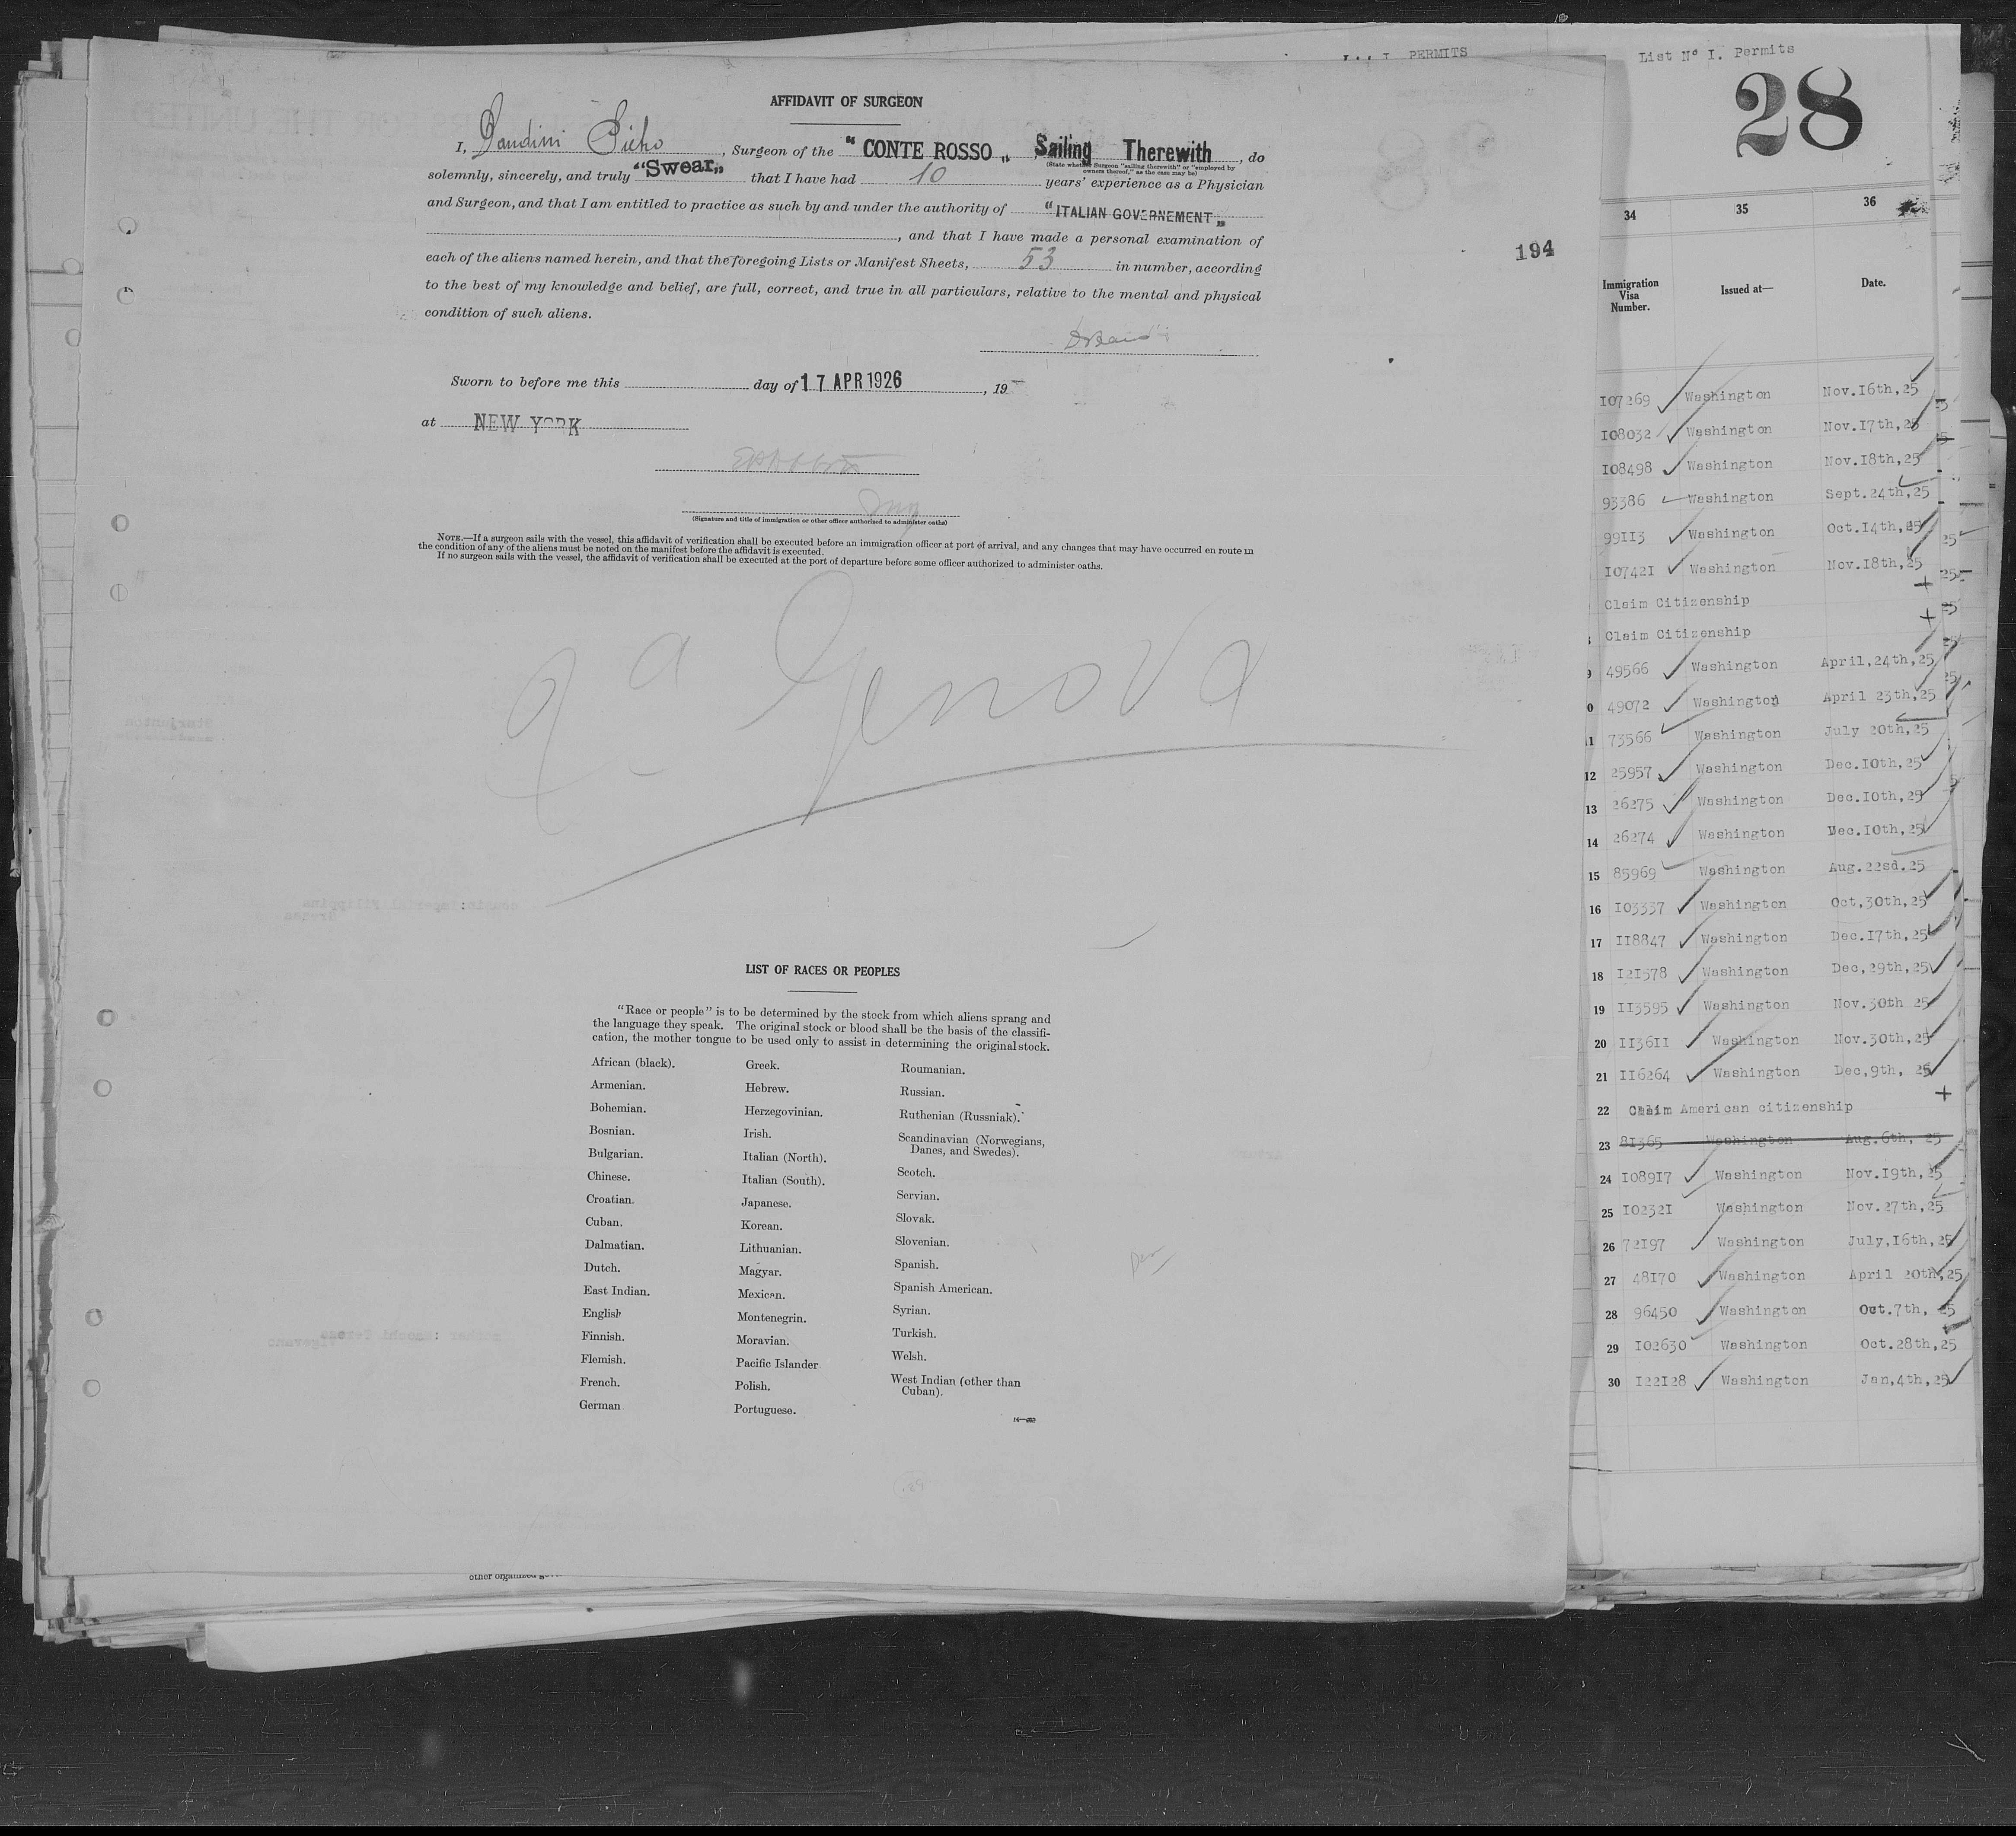 AFFIDAVIT OF SURGEON
I, , Surgeon of the "CONTE ROSSO„ Sailing Therewith, do
(State whether Surgeon "sailing therewith" or "employed by owners thereof," as the case may be)
solemnly, sincerely, and truly "Swear„ that I have had 10 years' experience as a Physician
and Surgeon, and that I am entitled to practice as such by and under the authority of "ITALIAN GOVERNEMENT„
, and that I have made a personal examination of
each of the aliens named herein, and that the foregoing Lists or Manifest Sheets, 53 in number, according
to the best of my knowledge and belief, are full, correct, and true in all particulars, relative to the mental and physical
condition of such aliens.
Sworn to before me this day of 17 APR 1926, 19
at NEW YORK
(Signature and title of immigration or other officer authorized to administer oaths)
NOTE.—If a surgeon sails with the vessel, this affidavit of verification shall be executed before an immigration officer at port of arrival, and any changes that may have occurred en route in
the condition of any of the aliens must be noted on the manifest before the affidavit is executed.
If no surgeon sails with the vessel, the affidavit of verification shall be executed at the port of departure before some officer authorized to administer oaths.
2a Genova
LIST OF RACES OR PEOPLES
"Race or people" is to be determined by the stock from which aliens sprang and
the language they speak. The original stock or blood shall be the basis of the classifi-
cation, the mother tongue to be used only to assist in determining the original stock.
African (black).
Armenian.
Bohemian.
Bosnian.
Bulgarian.
Chinese.
Croatian.
Cuban.
Dalmatian.
Dutch.
East Indian.
English
Finnish.
Flemish.
French.
German
Greek.
Hebrew.
Herzegovinian.
Irish.
Italian (North).
Italian (South).
Japanese.
Korean.
Lithuanian.
Magyar.
Mexican.
Montenegrin.
Moravian.
Pacific Islander
Polish.
Portuguese.
Roumanian.
Russian.
Ruthenian (Russniak).
Scandinavian (Norwegians,
Danes, and Swedes).
Scotch.
Servian.
Slovak.
Slovenian.
Spanish.
Spanish American.
Syrian.
Turkish.
Welsh.
West Indian (other than
Cuban).
other organized
PERMITS
194
List Nº I. Permits
28
34 35 36
Immigration Visa Number. Issued at— Date.
107269 Washington Nov.16th,25
108032 Washington Nov.17th,25
108498 Washington Nov.18th,25
93386 Washington Sept.24th,25
99113 Washington Oct.14th,25
107421 Washington Nov.18th,25
Claim Citizenship
Claim Citizenship
9 49566 Washington April,24th,25
0 49072 Washington April 23th,25
11 73566 Washington July 20th,25
12 25957 Washington Dec.10th,25
13 26275 Washington Dec.10th,25
14 26274 Washington Dec.10th,25
15 85969 Washington Aug.22sd.25
16 103337 Washington Oct,30th,25
17 118847 Washington Dec.17th,25
18 121578 Washington Dec,29th,25
19 113595 Washington Nov.30th 25
20 113611 Washington Nov.30th,25
21 116264 Washington Dec,9th, 25
22 Claim American citizenship
23 81365 Washington Aug.6th, 25
24 108917 Washington Nov.19th,25
25 102321 Washington Nov.27th,25
26 72197 Washington July,16th,25
27 48170 Washington April 20th,25
28 96450 Washington Oct.7th, 25
29 102630 Washington Oct.28th,25
30 122128 Washington Jan,4th,25